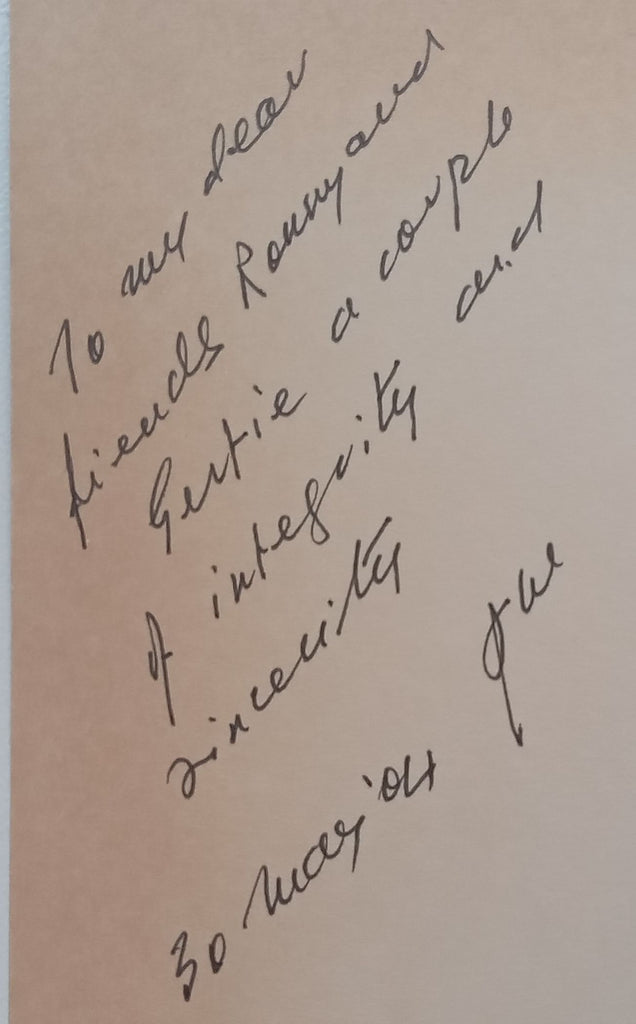 To my dear
friends Ronny and
Gertie a couple
of integrity and
sincerity
30 May '04